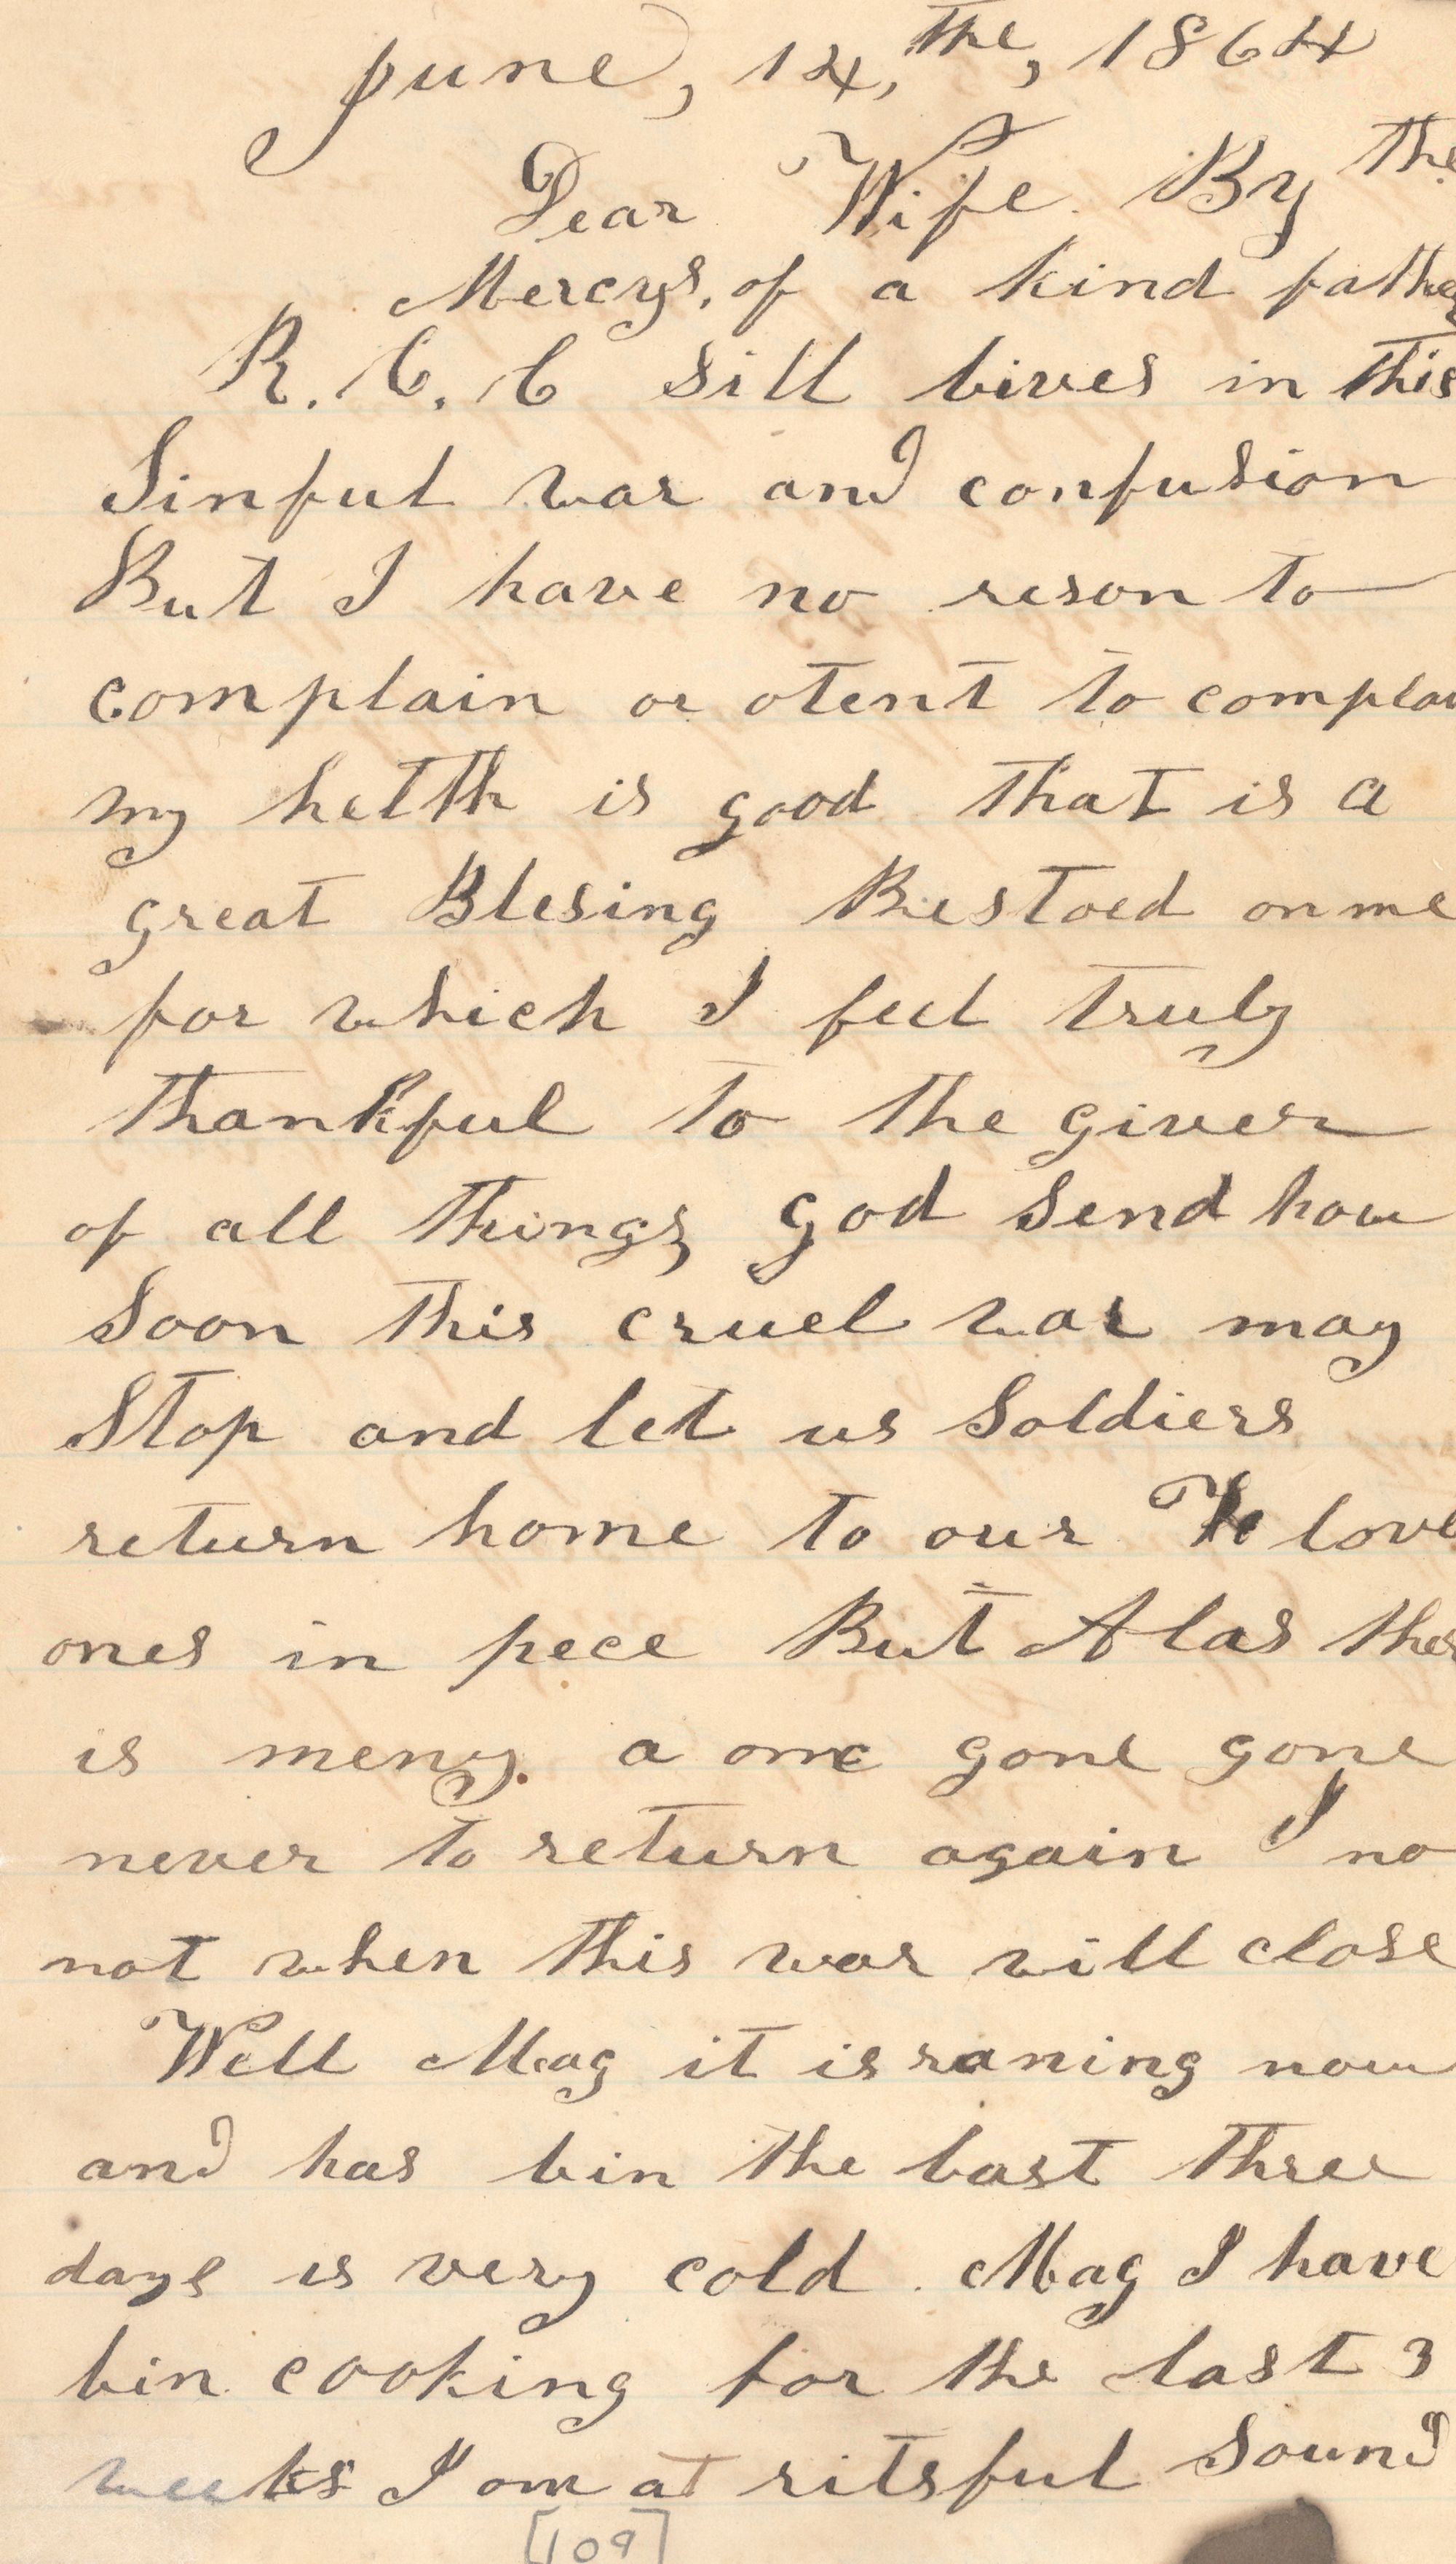 June, 14,the, 1864
Dear Wife. By the
Mercys, of a kind father
R. C. C sill lives in this
Sinful war and confusion
But I have no reson to
complain or otent to complai
my helth is good that is a
great Blesing Bestoed on me
for which I feel truly
thankful to the giver
of all things god send how
Soon this cruel war may
Stop and let us Soldiers
return home to our love
ones in pece But Alas ther
is meny. a one gone gone
never to return again I no
not when this war will close
Well Mag it is raning now
and has bin the last three
days is very cold. Mag I have
bin cooking for the last 3
weeks I am at ritsful Sound
[109]